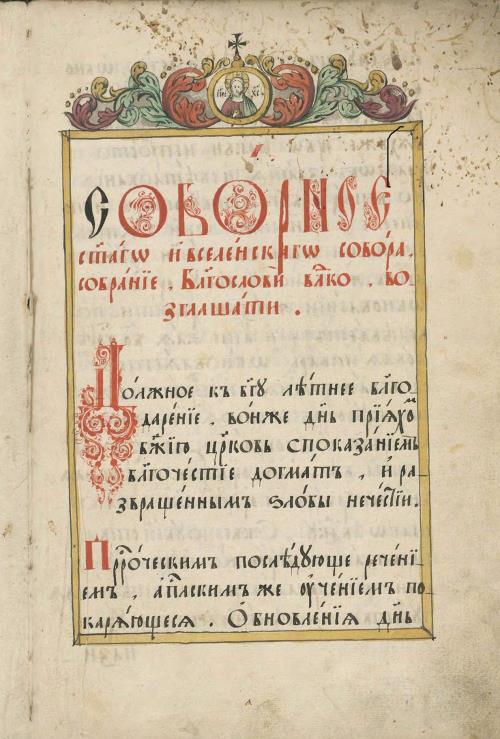 І҃С Х҃С
СОБОРНОЕ
ст҃а́гѡ и҆ вселе́нскагѡ собо́ра,
собра́нїе. Бл҃гословѝ влⷣко. во
зглаша́ти.
До́лжное къ бг҃ꙋ лѣ́тнее бл҃го
даре́нїе. во́нже дн҃ь прїѧ́хоⷨ
бж҃їго цр҃ковь споказа́нїемъ
бл҃гоче́стїе догма́тъ, и҆ ра
звраще́ннымъ ѕло́бы нече́стїи.
Прⷪ҇ро́ческимъ послѣ́дꙋюще рече́нї
емъ, а҆пⷭ҇лскимъ же ᲂу҆че́нїемъ по
карѧ́ющесѧ. О҆бновле́нїѧ дн҃ь